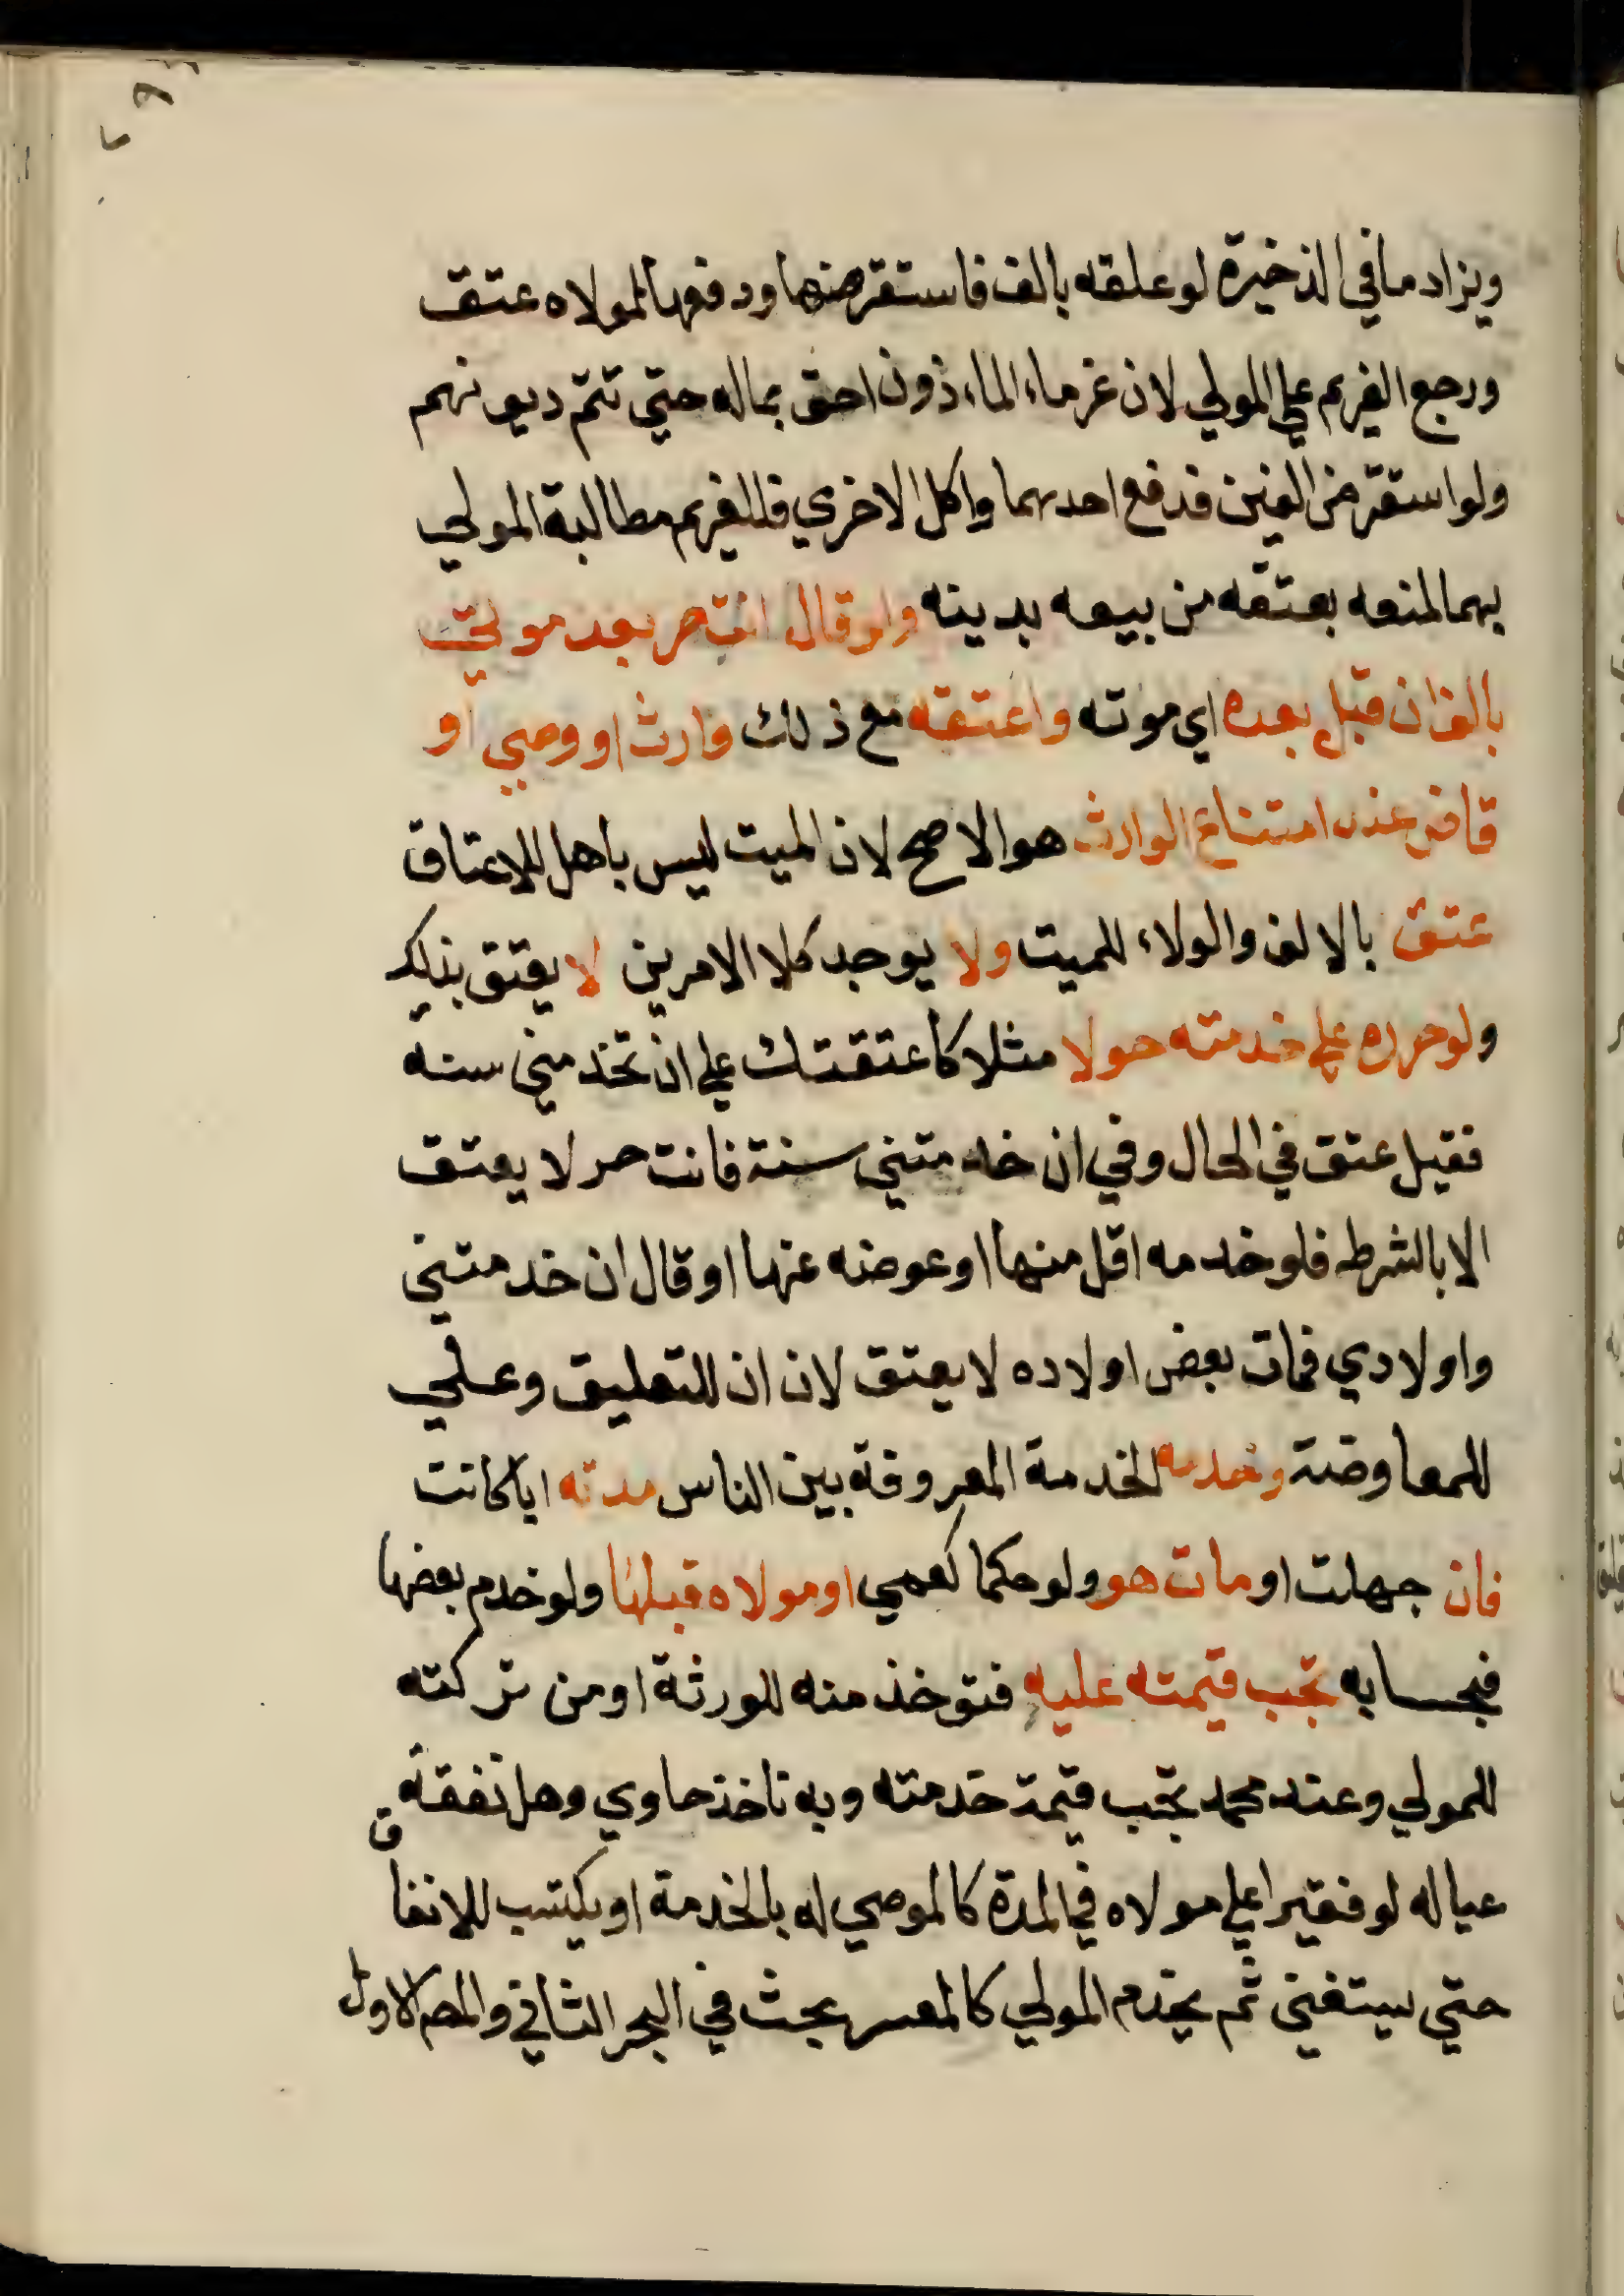 ويزاد ما في الذخيرة لو علقه بالف فاستقرضها ودفعها لمولاه عتق
ورجع الغريم علي المولي لان غرماء الماء ذون احق بماله حتي تتم ديونهم
ولو استقرض الفين فدفع احدهما واكل الاخري فللغريم مطالبة المولي
بهما لمنعه بعتقه من بيعه بدينه ولو قال انت حر بعد موتي
بالف ان قبل بعده اي موته واعتقه مع ذلك وارث او وصي او
قاض عند امتناع الوارث هو الاصح لان الميت ليس باهل للاعتاق
عتق بالالف والولاء للميت ولا يوجد كلا الامرين لا يعتق بذلك
ولو حرره علي خدمته حولا مثلا كاعتقتك علي ان تخدمني سنة
فقبل عتق في الحال وفي ان خدمتني سنة فانت حر لا يعتق
الا بالشرط فلو خدمه اقل منها او عوضه عنها او قال ان خدمتني
واولادي فمات بعض اولاده لا يعتق لان ان للتعليق وعلي
للمعاوضة وخدمه الخدمة المعروفة بين الناس مدته ايا كانت
فان جهلت او مات هو ولو حكما كعمي او مولاه قبلها ولو خدم بعضها
فبحسابه تجب قيمته عليه فتوخذ منه للورثة او من تركته
للمولي وعند محمد تجب قيمة خدمته وبه ناخذ حاوي وهل نفقة
عياله لو فقيرا علي مولاه في المدة كالموصي له بالخدمة او يكتسب للانفاق
حتي يستغني ثم يخدم المولي كالمعسر بحث في البحر الثاني والمص الاول